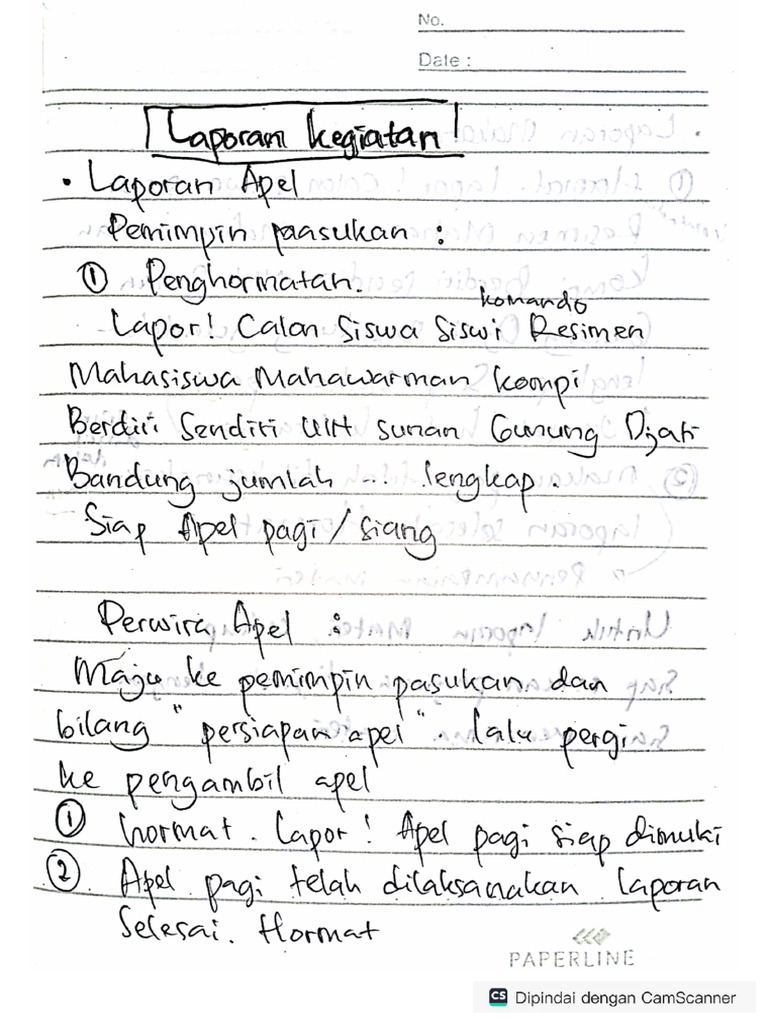 No.
Date :
Laporan kegiatan
• Laporan Apel
Pemimpin paasukan :
① Penghormatan.
komando
Lapor! Calon Siswa Siswi Resimen
Mahasiswa Mahawarman kompi
Berdiri Sendiri UIN sunan Gunung Djati
Bandung jumlah ... lengkap.
Siap Apel pagi / siang
Perwira Apel :
Maju ke pemimpin pasukan dan
bilang "persiapan apel". lalu pergi
ke pengambil apel
① hormat. Lapor! Apel pagi siap dimuki
② Apel pagi telah dilaksanakan laporan
Selesai. Hormat
PAPERLINE
CS Dipindai dengan CamScanner